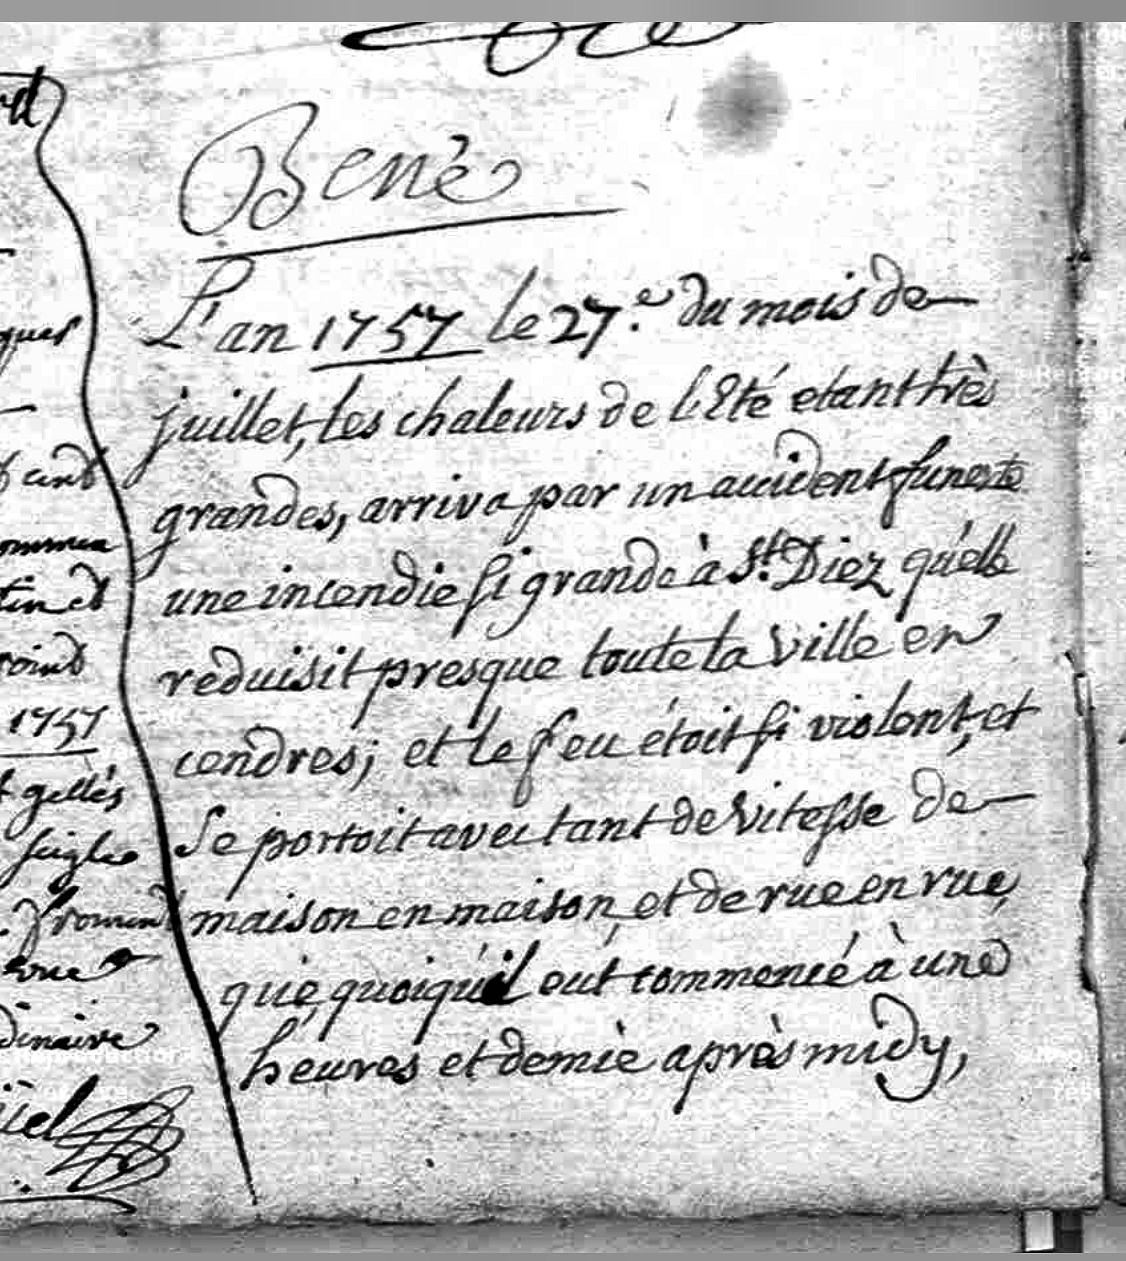 Bene
L'an 1757 le 27.e du mois de
juillet, les chaleurs de l'Eté etant très
grandes, arriva par un accident funeste
une incendie si grande à St. Diez qu'elle
réduisit presque toute la ville en
cendres; et le feu étoit si violent, et
se portoit avec tant de vitesse de
maison en maison, et de rue en rue,
que quoiqu'il eut commencé à une
heures et demie après midy,
ques
cent
tin et
1757
gellés
seigle
froment
dinaire